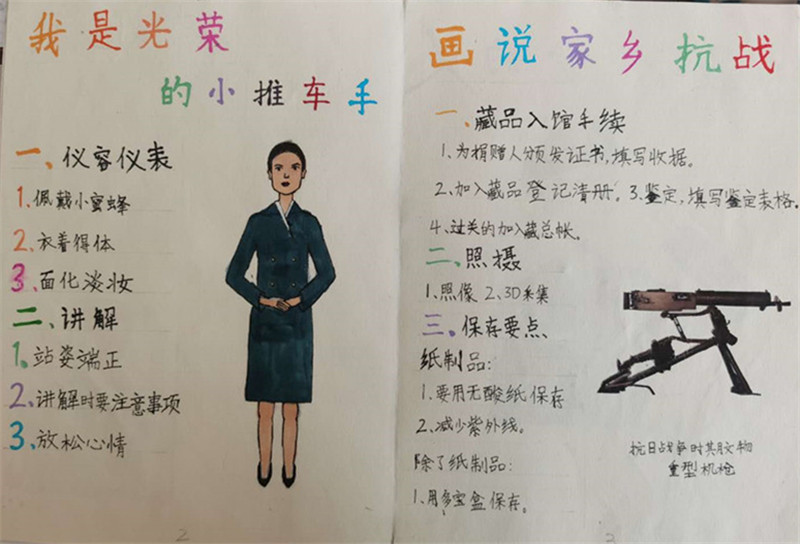 我是光荣
的小推车手
一、仪容仪表
1.佩戴小蜜蜂
2.衣着得体
3.面化淡妆
二、讲解
1.站姿端正
2.讲解时要注意事项
3.放松心情
2
画说家乡抗战
一、藏品入馆手续
1.为捐赠人颁发证书,填写收据。
2.加入藏品登记清册。3.鉴定,填写鉴定表格。
4.过关的加入藏总帐。
二、照摄
1.照像 2.3D采集
三、保存要点
纸制品:
1.要用无酸纸保存
2.减少紫外线。
除了纸制品:
1.用多宝盒保存。
抗日战争时其月文物
重型机枪
2